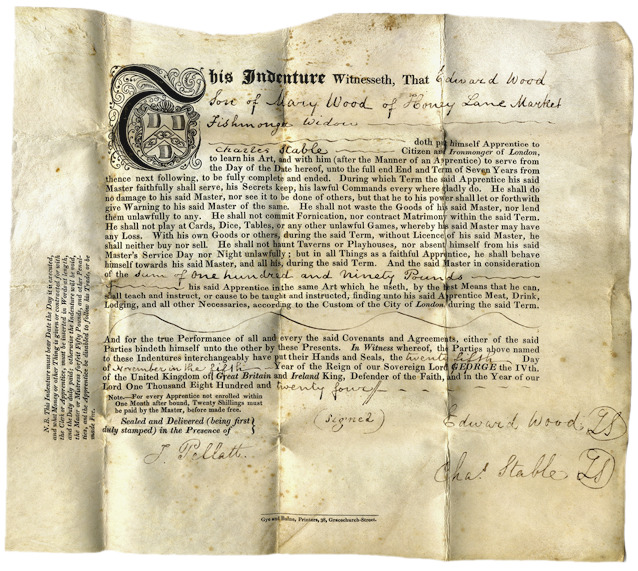 This Indenture Witnesseth, That Edward Wood
Son of Mary Wood of Honey Lane Market
Fishmonger Widow
doth put himself Apprentice to
Charles Stable Citizen and Ironmonger of London,
to learn his Art, and with him (after the Manner of an Apprentice) to serve from
the Day of the Date hereof, unto the full end End and Term of Seven Years from
thence next following, to be fully complete and ended. During which Term the said Apprentice his said
Master faithfully shall serve, his Secrets keep, his lawful Commands every where gladly do. He shall do
no damage to his said Master, nor see it to be done of others, but that he to his power shall let or forthwith
give Warning to his said Master of the same. He shall not waste the Goods of his said Master, nor lend
them unlawfully to any. He shall not commit Fornication, nor contract Matrimony within the said Term.
He shall not play at Cards, Dice, Tables, or any other unlawful Games, whereby his said Master may have
any Loss. With his own Goods or others, during the said Term, without Licence of his said Master, he
shall neither buy nor sell. He shall not haunt Taverns or Playhouses, nor absent himself from his said
Master's Service Day nor Night unlawfully; but in all Things as a faithful Apprentice, he shall behave
himself towards his said Master, and all his, during the said Term. And the said Master in consideration
of the Sum of One hundred and Ninety Pounds
his said Apprentice in the same Art which he useth, by the best Means that he can,
shall teach and instruct, or cause to be taught and instructed, finding unto his said Apprentice Meat, Drink,
Lodging, and all other Necessaries, according to the Custom of the City of London during the said Term.
And for the true Performance of all and every the said Covenants and Agreements, either of the said
Parties bindeth himself unto the other by these Presents. In Witness whereof, the Parties above named
to these Indentures interchangeably have put their Hands and Seals, the twenty fifth Day
of November in the fifth Year of the Reign of our Sovereign Lord GEORGE the IVth.
of the United Kingdom of Great Britain and Ireland King, Defender of the Faith, and in the Year of our
Lord One Thousand Eight Hundred and twenty four
Note—For every Apprentice not enrolled within
One Month after bound, Twenty Shillings must
be paid by the Master, before made free.
Sealed and Delivered (being first
duly stamped) in the Presence of
J. Pellatt
(Signed)
Edward Wood LS
Chas. Stable LS
Gye and Balne, Printers, 38, Gracechurch-Street.
N.B. This Indenture must bear Date the Day it is executed,
and what Money or other Thing is given or contracted for with
the Clerk or Apprentice, must be inserted in Words at length,
and the Duty paid, otherwise the Indenture will be void,
the Master or Mistress forfeit Fifty Pounds, and other Penal-
ties, and the Apprentice be disabled to follow his Trade, or be
made Free.